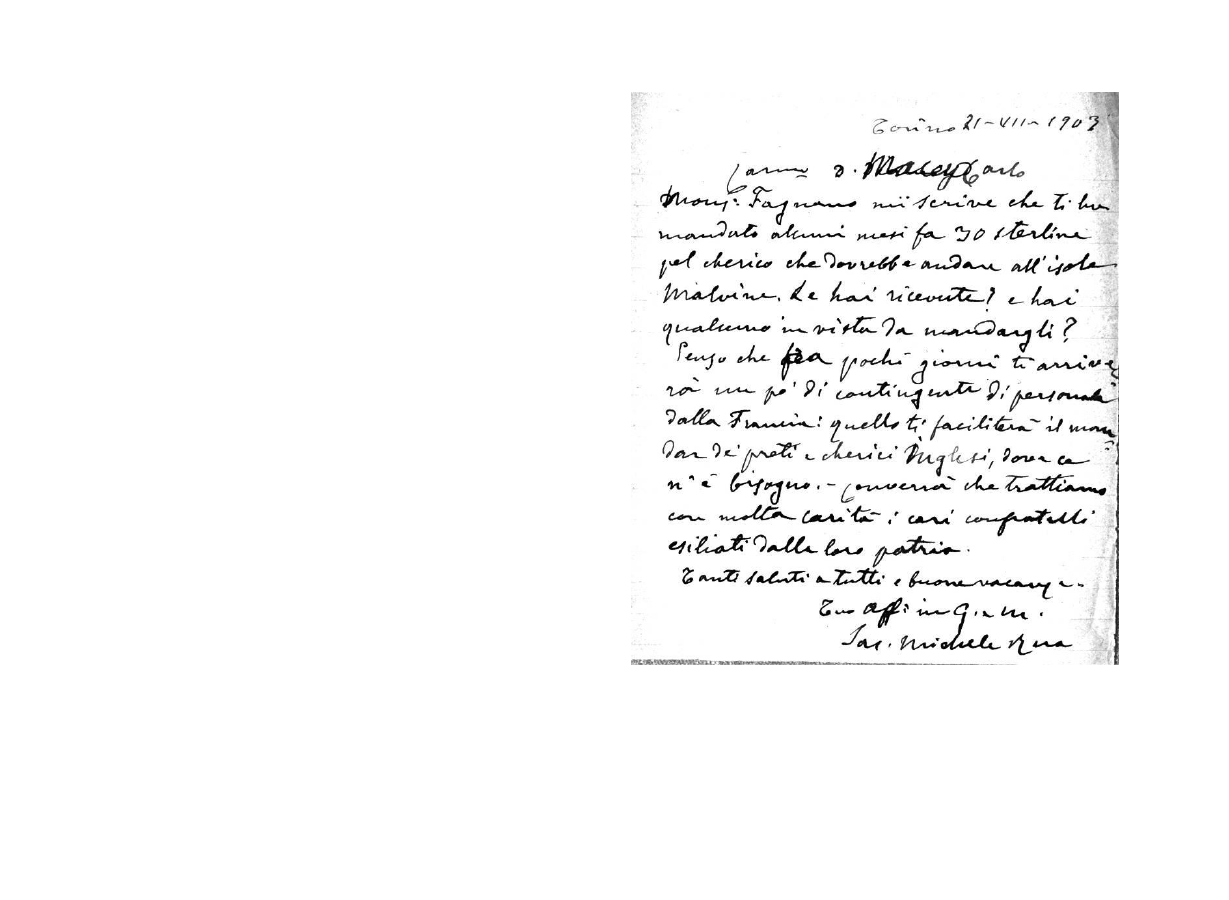 Torino 21-VII-1903
Carmo D. Macey Carlo
Monsr Fagnano mi scrive che ti ha
mandato alcuni mesi fa 30 sterline
pel cherico che dovrebbe andare all'isole
Malvine. Le hai ricevute? e hai
qualcuno in vista da mandargli?
Penso che fra pochi giorni ti arrive
rà un po' di contingente di personale
dalla Francia: quello ti faciliterà il man
dar dei preti e cherici Inglesi, dove ce
n'è bisogno. - Converrà che trattiamo
con molta carità i cari confratelli
esiliati dalla loro patria.
Tanti saluti a tutti e buone vacanze.
Tuo aff. in G. e M.
Sac. Michele Rua